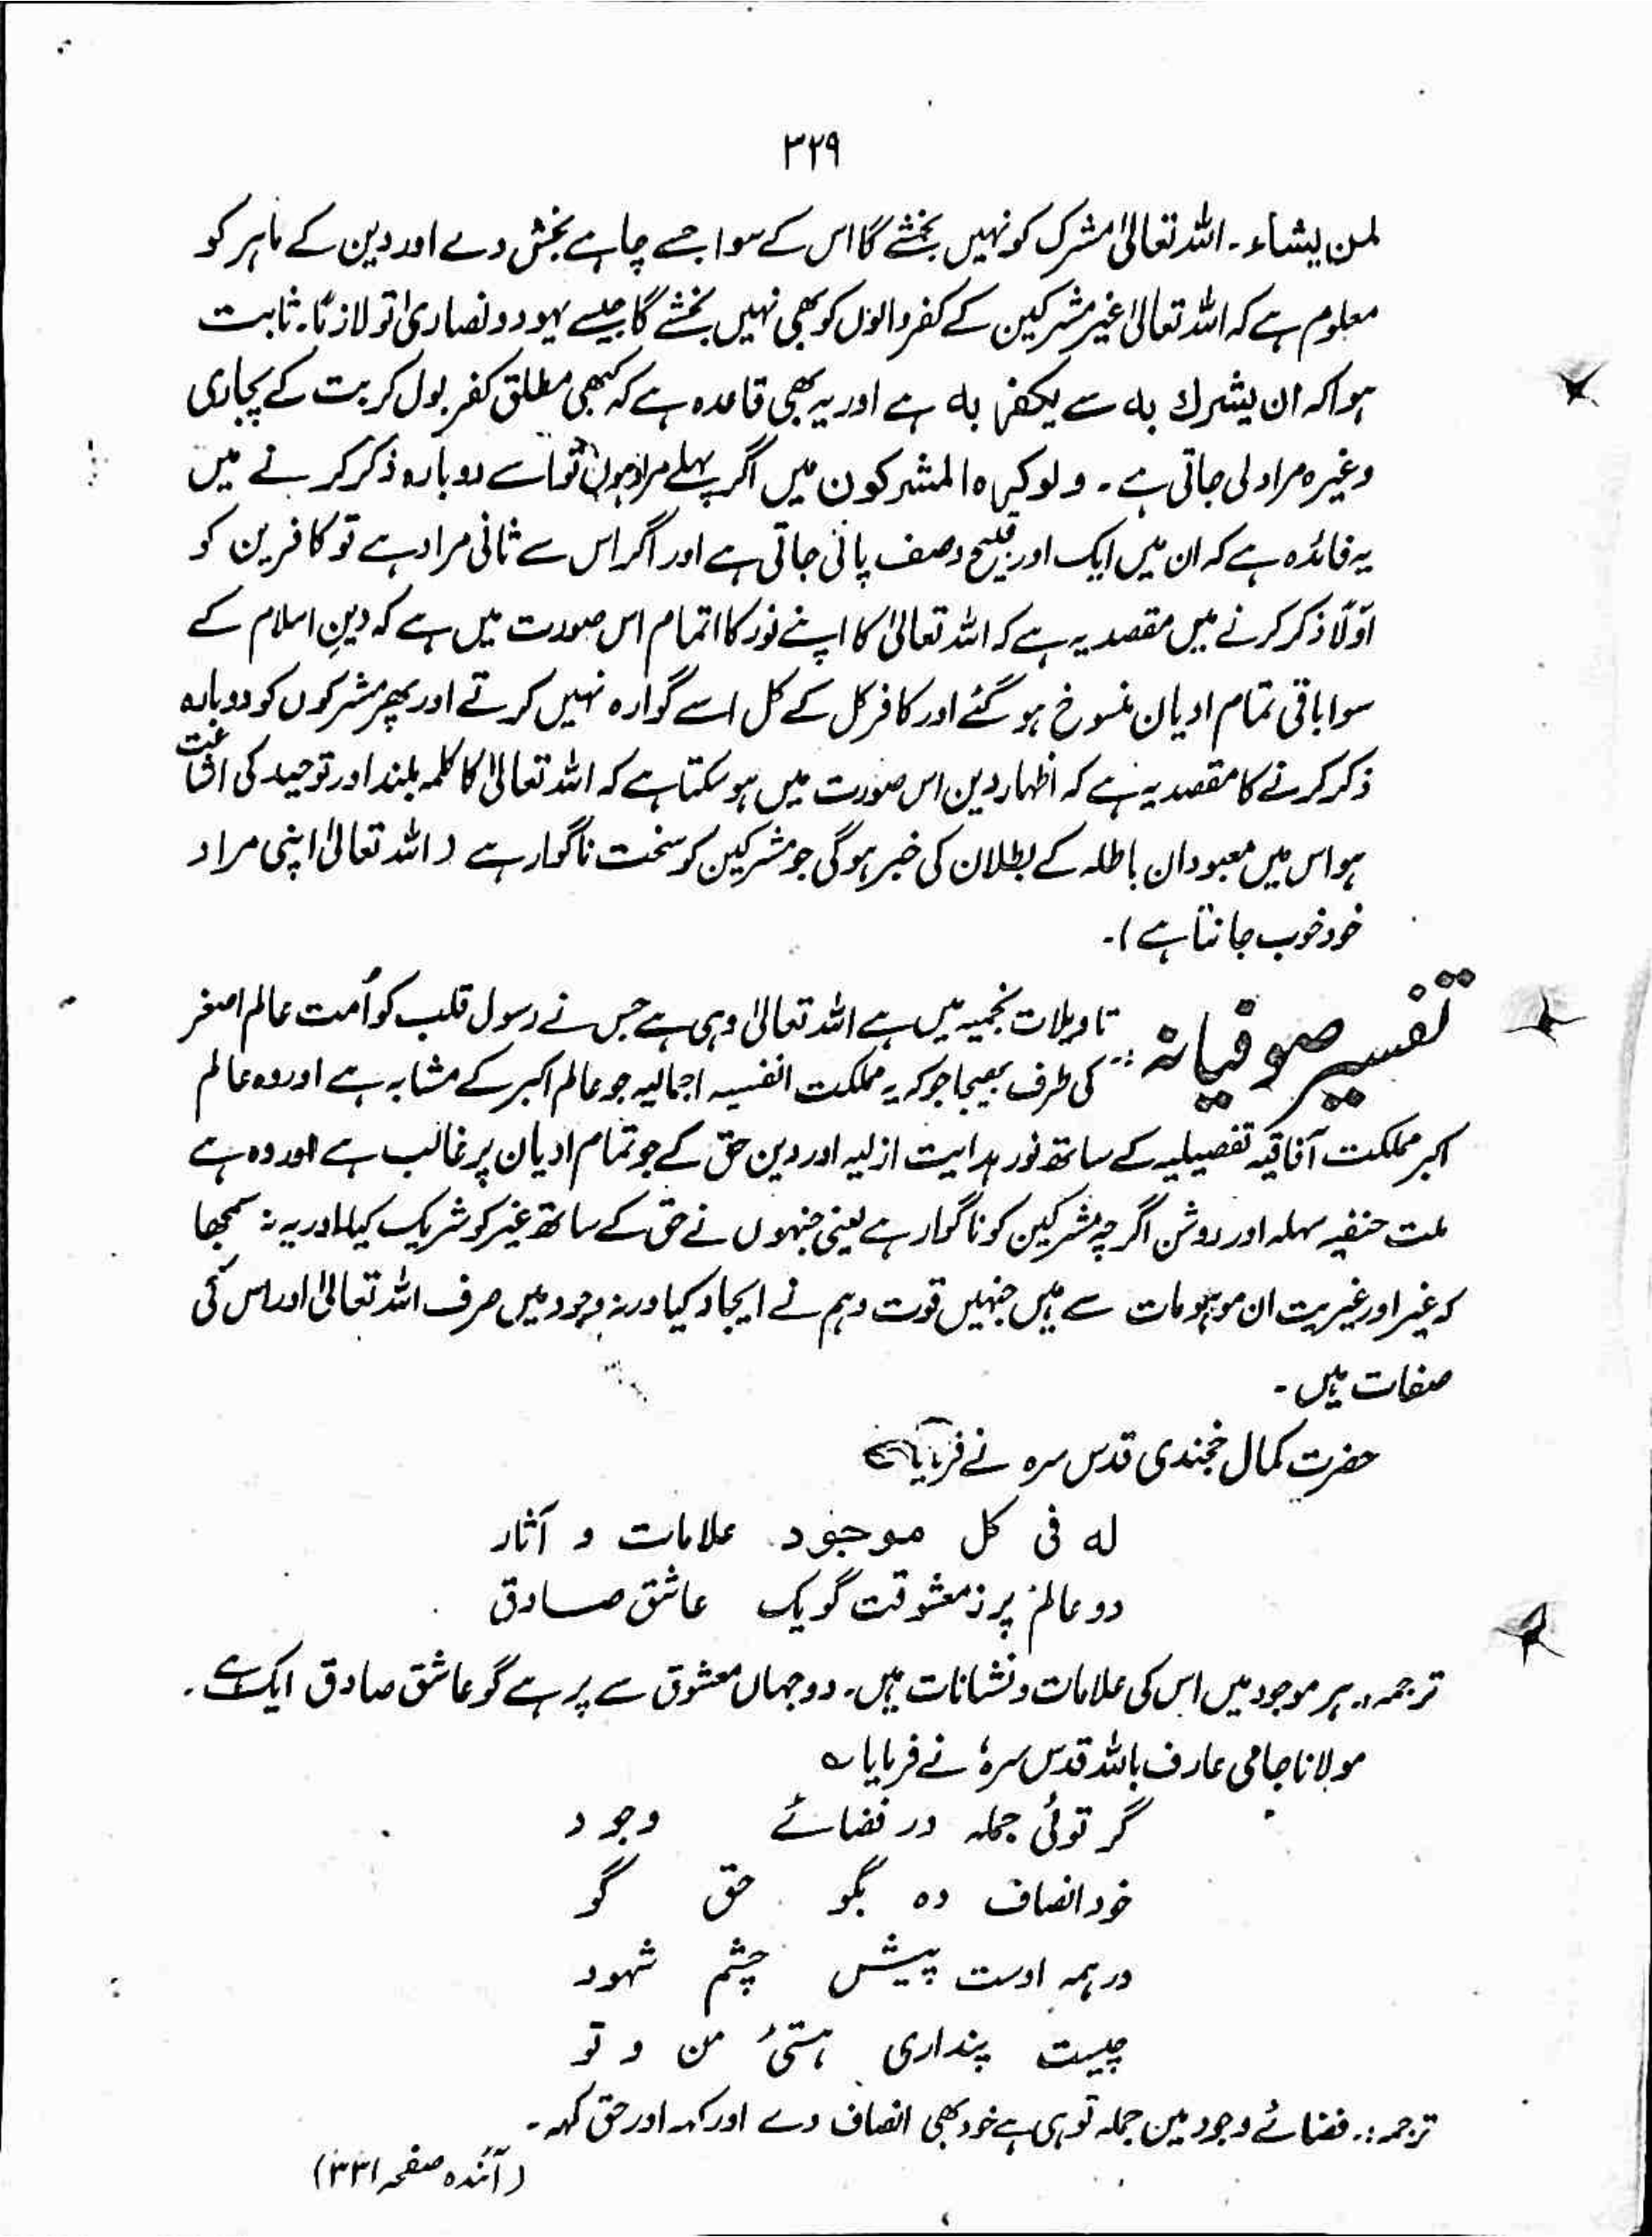 ۳۲۹
لمن یشاء۔ اللہ تعالیٰ مشرک کو نہیں بخشے گا اس کے سوا جسے چاہے بخش دے اور دین کے ماہر کو
معلوم ہے کہ اللہ تعالیٰ غیر مشرکین کے کفر والوں کو بھی نہیں بخشے گا جیسے یہود و نصاریٰ تو لازماً۔ ثابت
ہوا کہ ان یشرك به سے یکفر به ہے اور یہ بھی قاعدہ ہے کہ کبھی مطلق کفر بول کر بت کے پجاری
وغیرہ مراد لی جاتی ہے۔ ولو کره المشرکون میں اگر پہلے مراد ہوں تو اسے دوبارہ ذکر کرنے میں
یہ فائدہ ہے کہ ان میں ایک اور قبیح وصف پائی جاتی ہے اور اگر اس سے ثانی مراد ہے تو کافرین کو
اوّلاً ذکر کرنے میں مقصد یہ ہے کہ اللہ تعالیٰ کا اپنے نور کا اتمام اس صورت میں ہے کہ دینِ اسلام کے
سوا باقی تمام ادیان منسوخ ہو گئے اور کافر کل کے کل اسے گوارہ نہیں کرتے اور پھر مشرکوں کو دوبارہ
ذکر کرنے کا مقصد یہ ہے کہ اظہار دین اس صورت میں ہو سکتا ہے کہ اللہ تعالیٰ کا کلمہ بلند اور توحید کی اشاعت
ہو اس میں معبودان باطلہ کے بطلان کی خبر ہوگی جو مشرکین کو سخت ناگوار ہے (اللہ تعالیٰ اپنی مراد
خود خوب جانتا ہے)۔
تفسیر صوفیانہ :۔ تاویلات نجمیہ میں ہے اللہ تعالیٰ وہی ہے جس نے رسول قلب کو اُمت عالم اصغر
کی طرف بھیجا جو کہ یہ مملکت انفسیہ اجمالیہ جو عالم اکبر کے مشابہ ہے اور وہ عالم
اکبر مملکت آفاقیہ تفصیلیہ کے ساتھ نور ہدایت ازلیہ اور دین حق کے جو تمام ادیان پر غالب ہے اور وہ ہے
ملت حنفیہ سہلہ اور روشن اگرچہ مشرکین کو ناگوار ہے یعنی جنہوں نے حق کے ساتھ غیر کو شریک کیا اور یہ نہ سمجھا
کہ غیر اور غیریت ان موہومات سے ہیں جنہیں قوت وہم نے ایجاد کیا ورنہ وجود میں صرف اللہ تعالیٰ اور اس کی
صفات ہیں۔
حضرت کمال خجندی قدس سرہ نے فرمایا
له فی کل موجود علامات و آثار
دو عالم پر ز معشوقت گو یک عاشق صادق
ترجمہ:۔ ہر موجود میں اس کی علامات و نشانات ہیں۔ دو جہاں معشوق سے پر ہے گو عاشق صادق ایک ہے۔
مولانا جامی عارف باللہ قدس سرہٗ نے فرمایا ؎
گر توئی جملہ در فضائے وجود
خود انصاف دہ بگو حق گو
در ہمہ اوست پیش چشم شہود
چیست پنداری ہستیٔ من و تو
ترجمہ:۔ فضائے وجود میں جملہ تو ہی ہے خود بھی انصاف دے اور کہہ اور حق کہہ۔
(آئندہ صفحہ ۳۳۱)